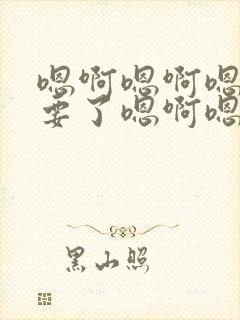 嗯啊嗯啊嗯
要了嗯啊嗯
黑山照